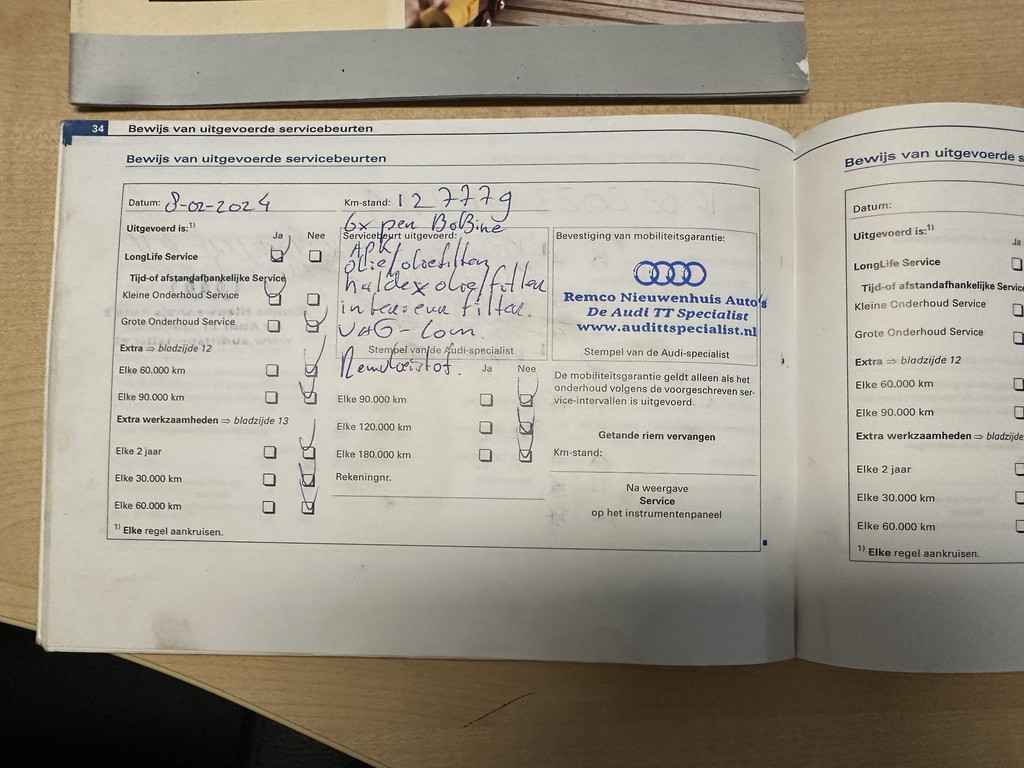 34 Bewijs van uitgevoerde servicebeurten
Bewijs van uitgevoerde servicebeurten
Datum: 8-02-2024
Km-stand: 127779
6x pen BoBine
Uitgevoerd is:1)
Ja Nee
LongLife Service
Tijd-of afstandafhankelijke Service
Kleine Onderhoud Service
Grote Onderhoud Service
Extra ⇒ bladzijde 12
Elke 60.000 km
Elke 90.000 km
Extra werkzaamheden ⇒ bladzijde 13
Elke 2 jaar
Elke 30.000 km
Elke 60.000 km
1) Elke regel aankruisen.
Servicebeurt uitgevoerd:
APK
olie/oliefilter
haldex olie/filter
interieur filter.
VAG-Com
Stempel van de Audi-specialist
Remvloeistof.
Ja Nee
Elke 90.000 km
Elke 120.000 km
Elke 180.000 km
Rekeningnr.
Bevestiging van mobiliteitsgarantie:
Remco Nieuwenhuis Auto's
De Audi TT Specialist
www.audittspecialist.nl
Stempel van de Audi-specialist
De mobiliteitsgarantie geldt alleen als het
onderhoud volgens de voorgeschreven ser-
vice-intervallen is uitgevoerd.
Getande riem vervangen
Km-stand:
Na weergave
Service
op het instrumentenpaneel
Bewijs van uitgevoerde s
Bewijs van uitgevoerde s
Datum:
Uitgevoerd is:1)
Ja
LongLife Service
Tijd-of afstandafhankelijke Service
Kleine Onderhoud Service
Grote Onderhoud Service
Extra ⇒ bladzijde 12
Elke 60.000 km
Elke 90.000 km
Extra werkzaamheden ⇒ bladzijde
Elke 2 jaar
Elke 30.000 km
Elke 60.000 km
1) Elke regel aankruisen.